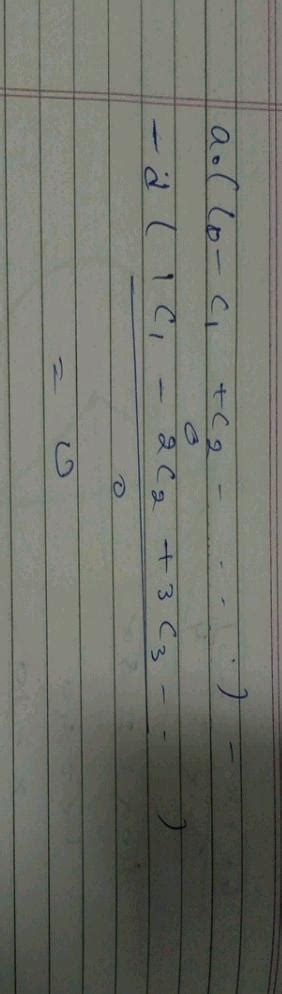 a.(C0 - C1 + C2 - . . . . ) -
0
- d ( 1C1 - 2C2 + 3C3 - - . )
0
= 0